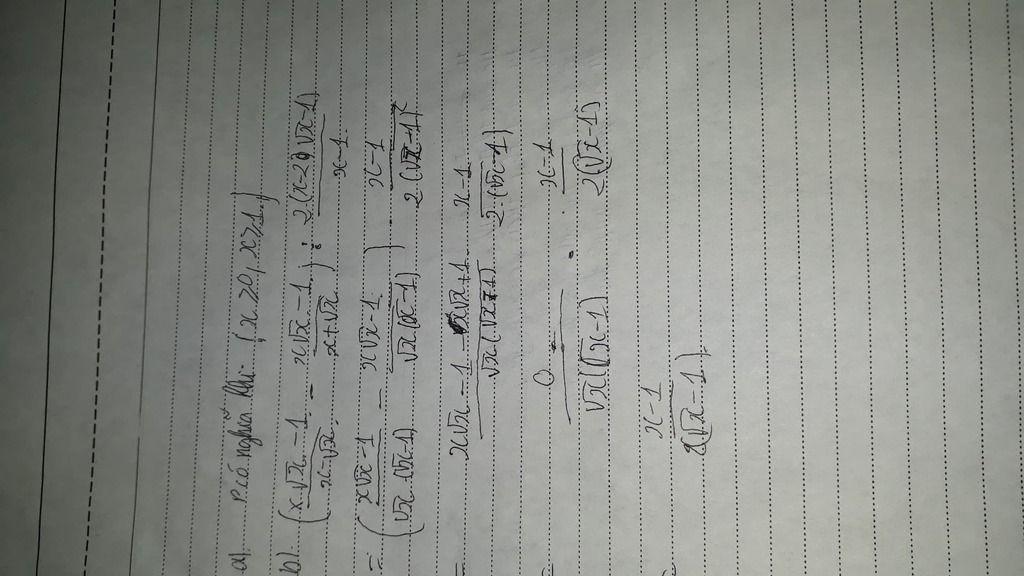 a) P có nghĩa khi {x ≥ 0, x > 1}
b) (x√x - 1 / x - √x - x√x - 1 / x + √x) : 2(x - 2√x - 1) / x - 1
= (x√x - 1 / √x (√x - 1) - x√x - 1 / √x (x - 1)) . x - 1 / 2(√x - 1)
= x√x - 1 - x√x + 1 / √x (√x + 1) . x - 1 / 2 (√x - 1)
= 0 / √x (√x - 1) . x - 1 / 2(√x - 1)
= x - 1 / 2(√x - 1)